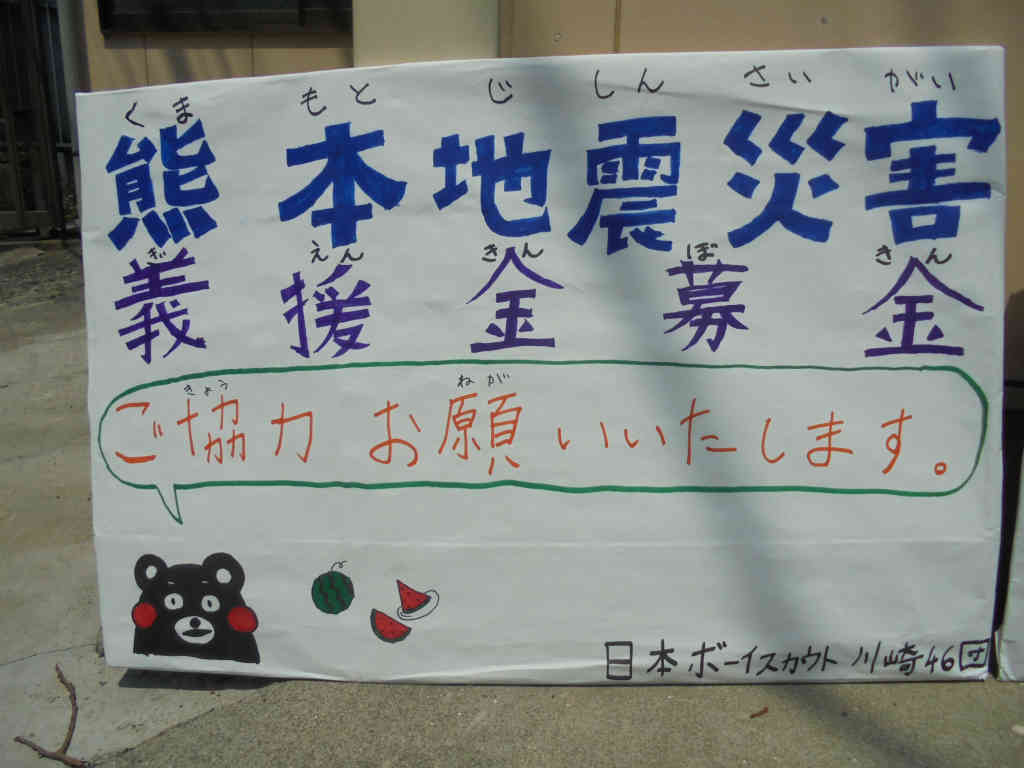 くま もと じ しん さい がい
熊本地震災害
ぎ えん きん ぼ きん
義援金募金
きょう ねが
ご協力 お願いいたします。
日本ボーイスカウト 川崎46団